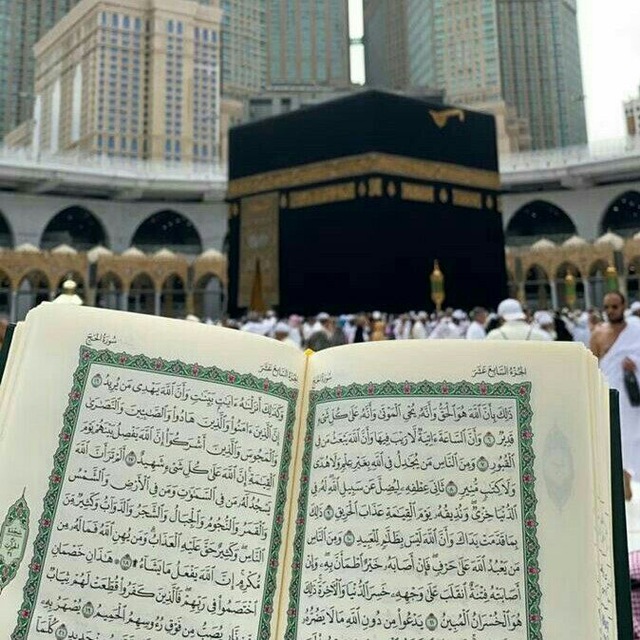 الجزء السابع عشر
سورة الحج
ذَٰلِكَ بِأَنَّ ٱللَّهَ هُوَ ٱلْحَقُّ وَأَنَّهُۥ يُحْىِ ٱلْمَوْتَىٰ وَأَنَّهُۥ عَلَىٰ كُلِّ شَىْءٍ
قَدِيرٌ ٦ وَأَنَّ ٱلسَّاعَةَ ءَاتِيَةٌ لَّا رَيْبَ فِيهَا وَأَنَّ ٱللَّهَ يَبْعَثُ مَن فِى
ٱلْقُبُورِ ٧ وَمِنَ ٱلنَّاسِ مَن يُجَٰدِلُ فِى ٱللَّهِ بِغَيْرِ عِلْمٍ وَلَا هُدًى
وَلَا كِتَٰبٍ مُّنِيرٍ ٨ ثَانِىَ عِطْفِهِۦ لِيُضِلَّ عَن سَبِيلِ ٱللَّهِ لَهُۥ فِى
ٱلدُّنْيَا خِزْىٌ وَنُذِيقُهُۥ يَوْمَ ٱلْقِيَٰمَةِ عَذَابَ ٱلْحَرِيقِ ٩ ذَٰلِكَ
بِمَا قَدَّمَتْ يَدَاكَ وَأَنَّ ٱللَّهَ لَيْسَ بِظَلَّٰمٍ لِّلْعَبِيدِ ١٠ وَمِنَ ٱلنَّاسِ
مَن يَعْبُدُ ٱللَّهَ عَلَىٰ حَرْفٍ فَإِنْ أَصَابَهُۥ خَيْرٌ ٱطْمَأَنَّ بِهِۦ وَإِنْ
أَصَابَتْهُ فِتْنَةٌ ٱنقَلَبَ عَلَىٰ وَجْهِهِۦ خَسِرَ ٱلدُّنْيَا وَٱلْءَاخِرَةَ ذَٰلِكَ
هُوَ ٱلْخُسْرَانُ ٱلْمُبِينُ ١١ يَدْعُوا۟ مِن دُونِ ٱللَّهِ مَا لَا يَضُرُّهُۥ
الجزء السابع عشر
سورة الحج
وَكَذَٰلِكَ أَنزَلْنَٰهُ ءَايَٰتٍۭ بَيِّنَٰتٍ وَأَنَّ ٱللَّهَ يَهْدِى مَن يُرِيدُ ١٦
إِنَّ ٱلَّذِينَ ءَامَنُوا۟ وَٱلَّذِينَ هَادُوا۟ وَٱلصَّٰبِـِٔينَ وَٱلنَّصَٰرَىٰ
وَٱلْمَجُوسَ وَٱلَّذِينَ أَشْرَكُوٓا۟ إِنَّ ٱللَّهَ يَفْصِلُ بَيْنَهُمْ يَوْمَ
ٱلْقِيَٰمَةِ إِنَّ ٱللَّهَ عَلَىٰ كُلِّ شَىْءٍ شَهِيدٌ ١٧ أَلَمْ تَرَ أَنَّ ٱللَّهَ
يَسْجُدُ لَهُۥ مَن فِى ٱلسَّمَٰوَٰتِ وَمَن فِى ٱلْأَرْضِ وَٱلشَّمْسُ
وَٱلْقَمَرُ وَٱلنُّجُومُ وَٱلْجِبَالُ وَٱلشَّجَرُ وَٱلدَّوَآبُّ وَكَثِيرٌ مِّنَ
ٱلنَّاسِ وَكَثِيرٌ حَقَّ عَلَيْهِ ٱلْعَذَابُ وَمَن يُهِنِ ٱللَّهُ فَمَا لَهُۥ مِن
مُّكْرِمٍ إِنَّ ٱللَّهَ يَفْعَلُ مَا يَشَآءُ ١٨ هَٰذَانِ خَصْمَانِ
ٱخْتَصَمُوا۟ فِى رَبِّهِمْ فَٱلَّذِينَ كَفَرُوا۟ قُطِّعَتْ لَهُمْ ثِيَابٌ
مِّن نَّارٍ يُصَبُّ مِن فَوْقِ رُءُوسِهِمُ ٱلْحَمِيمُ ١٩ يُصْهَرُ بِهِۦ